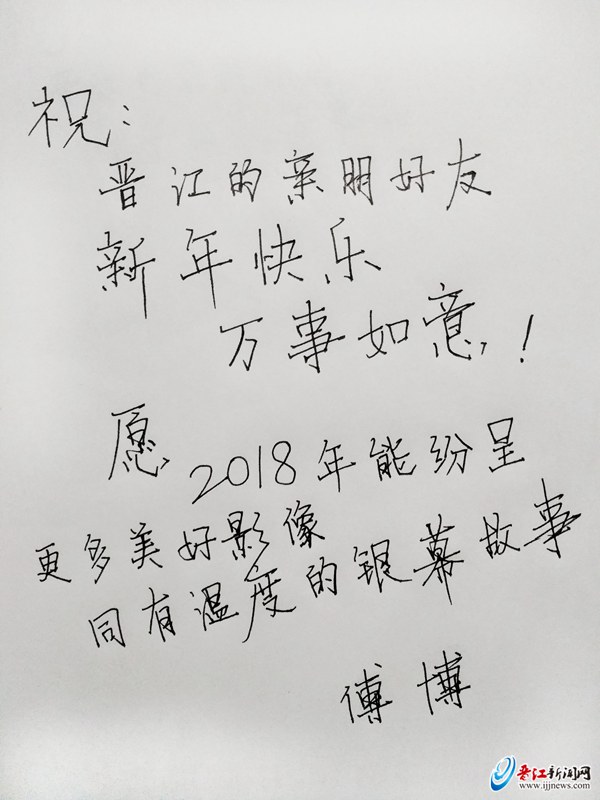 祝：
晋江的亲朋好友
新年快乐
万事如意！
愿 2018年能纷呈
更多美好影像
同有温度的银幕故事
傅博
晋江新闻网
www.ijjnews.com